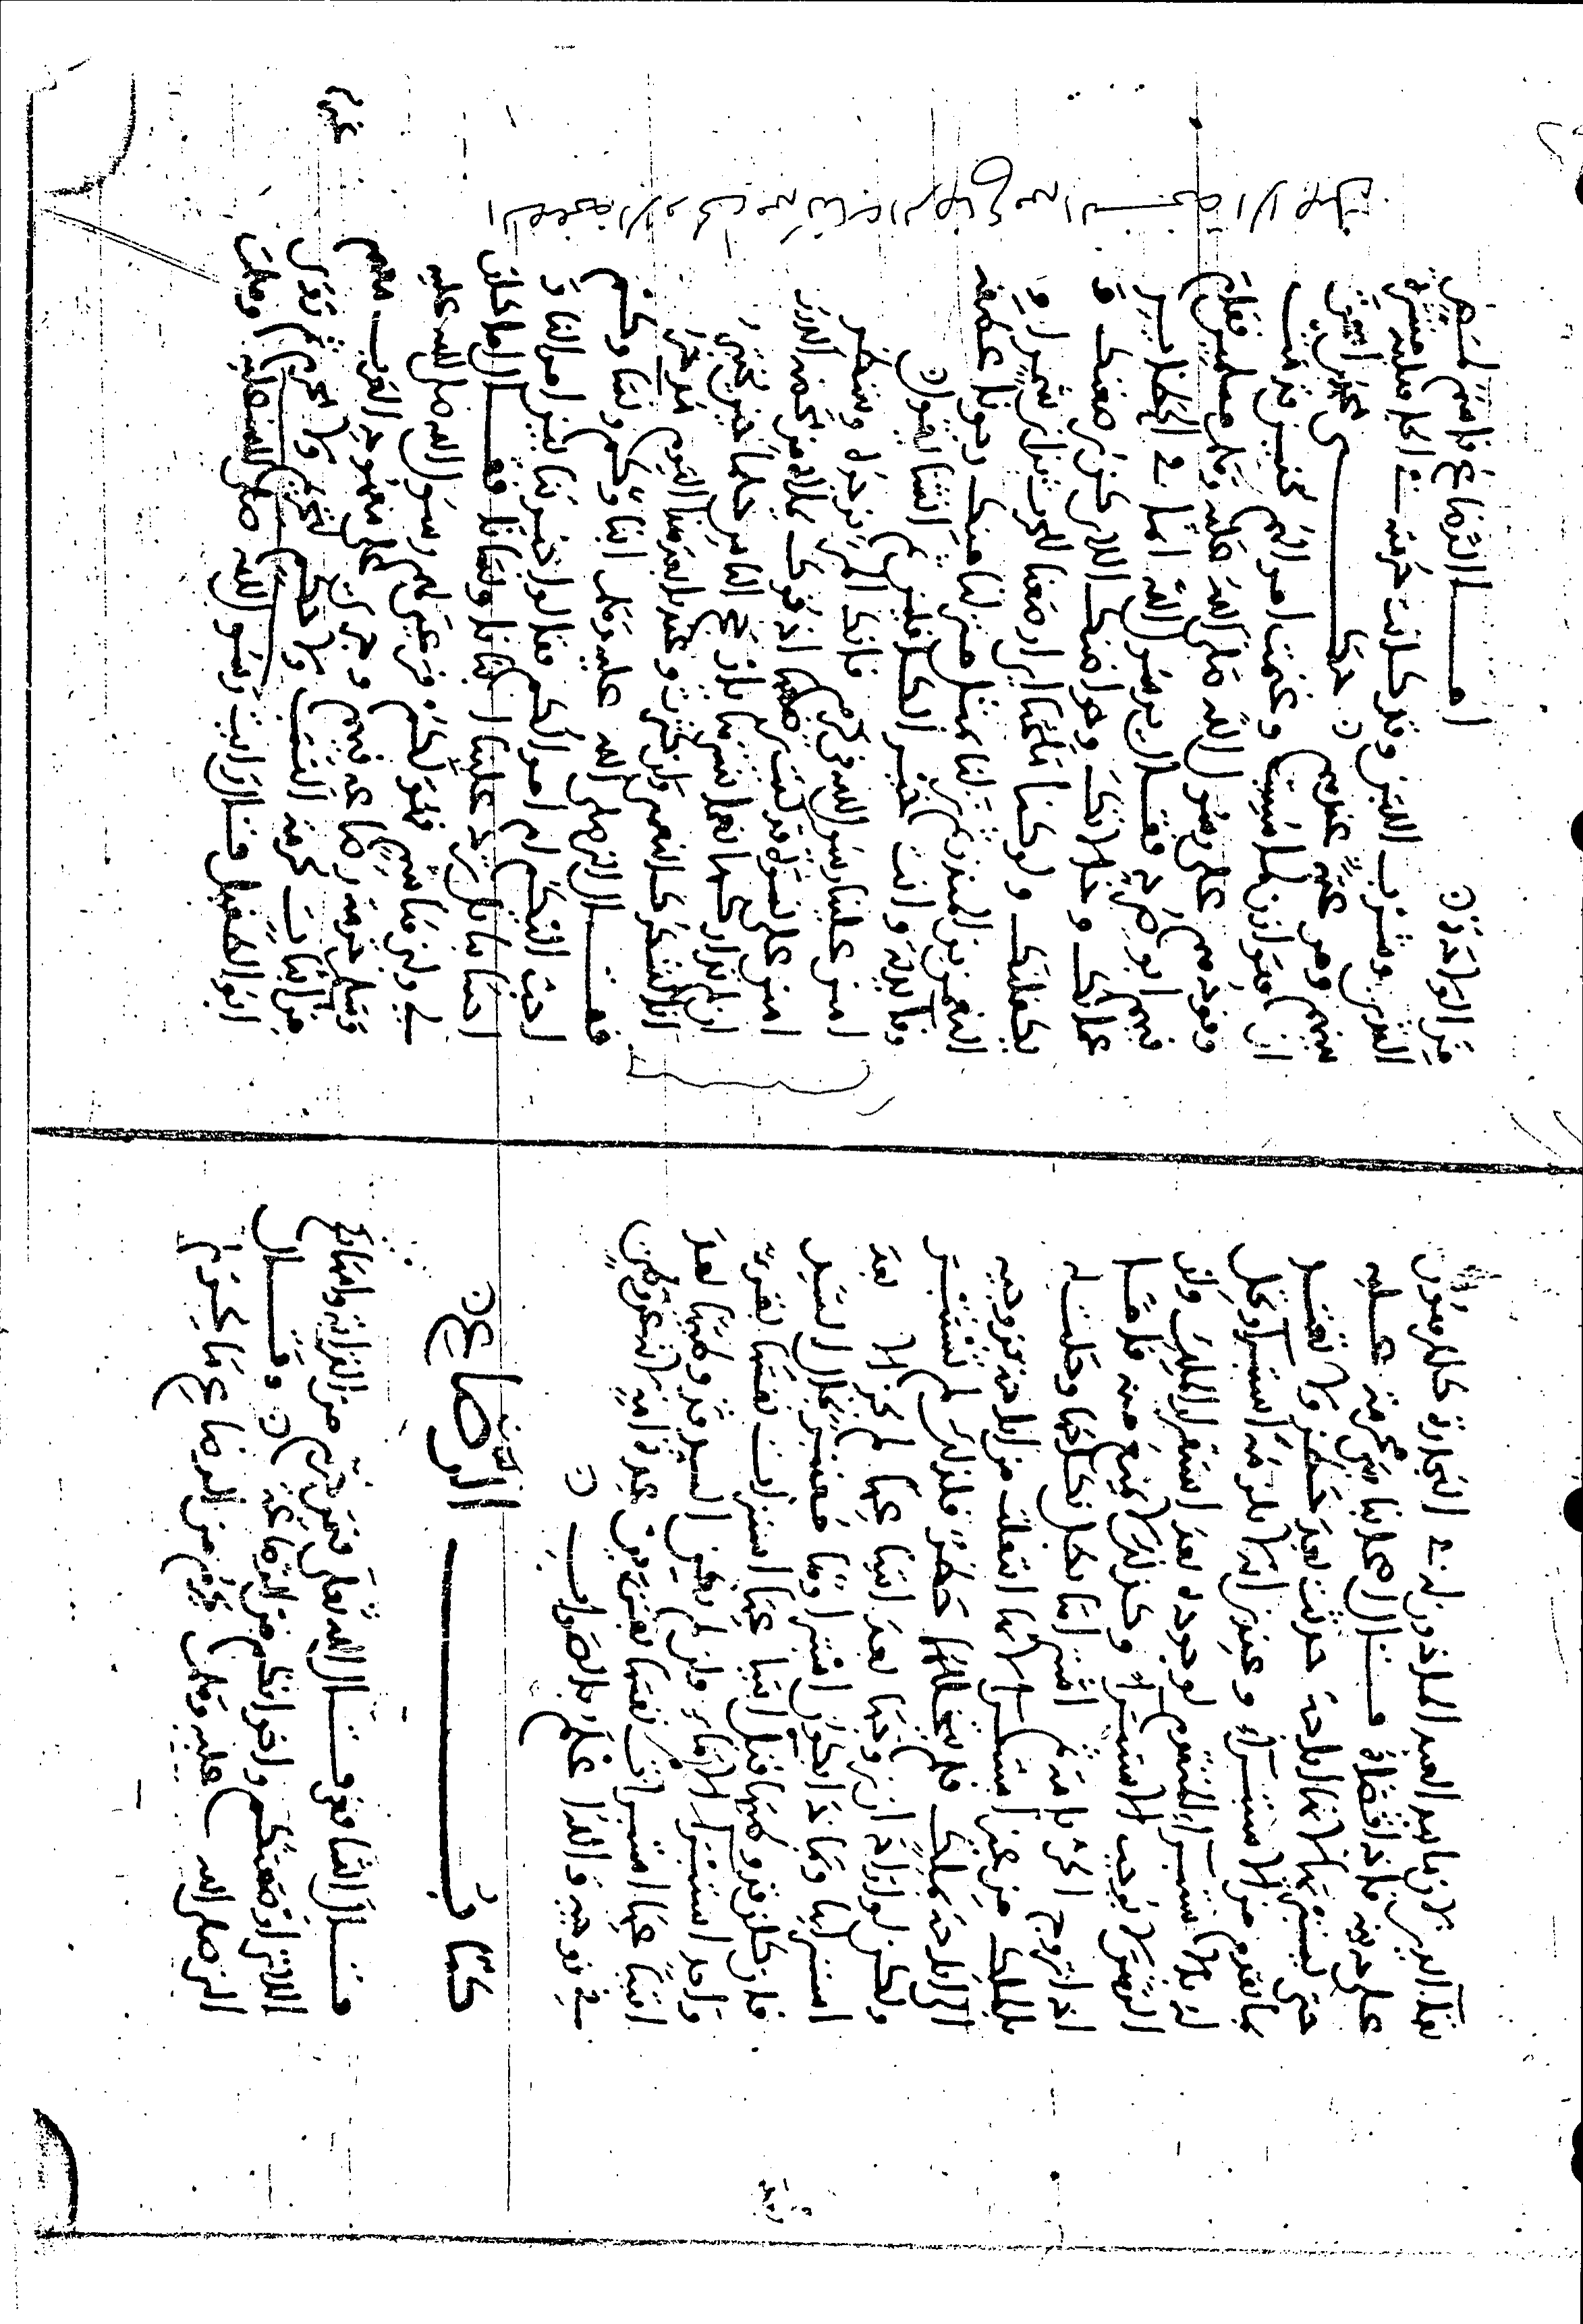 يعتبر الدين لان ما بيد العبد الماذون له في التجارة كالمرهون
على دينه فاذا قضاه زال تحريمه عليه
حتى يستبرئها لانها اباحة حدثت بعد حظر ولا يعتبر
بما تقدم من الاستبراء وعندنا لا يلزمه استبراء وتحل
له بالاستبراء المتقدم لوجوده بعد استقرار الملك ولان
الرهن لا يوجب الاستبراء وكذلك ما منع منه فاما
اذا تزوج الحر بامة ثم اشتراها بطل نكاحها وحلت له
بالملك من غير استبراء لانها انتقلت من اباحة بزوجيه
الى اباحة بملك فلم يتخللها حظر فلذلك لم تستبر
ولكن لو اراد ان يزوجها بعد ابتياعها لم يجز الا بعد
استبرايها وبماذا يكون استبراوها معتبر بحال السيد
فان كان قد وطئها قبل ابتياعها استبرات نفسها بقرء
واحد استبراء الاماء وان لم يطئها السيد وقد وطئها بعد
ابتياعها استبرات نفسها بقرءين عدة امة
في زوجيه والله اعلم بالصواب
كتاب الرضاع
قال الشافعي قال الله تعالى فيمن حرم من القرابة وامهاتكم
اللاتي ارضعنكم واخواتكم من الرضاعة وقال
النبي صلى الله عليه وسلم يحرم من الرضاع ما يحرم
الصفحة الاولى من كتاب الرضاع من النسخة الاصل
من الولادة اما الرضاع فاسم لمص
الثدي وشرب اللبن وقد كانت حرمته في الجاهلية منتشرة
بينهم ومرعية عندهم حكى محمد بن اسحق
ان هوازن لما سبيت وغنمت اموالهم بحنين قدمت
وفودهم على رسول الله صلى الله عليه وسلم مسلمين فقام
فيهم ابو صرد فقال يا رسول الله انما في الحظاير
عماتك وخالاتك وحواضنك اللاتي كن حضنك و
يكفلنك ولو كنا مالحنا ابن ابي شمر او
النعمن بن المنذر ثم نزلنا مثل منزلنا منك رجونا عطفه
وفايدته وانت خير المكفولين ثم انشا يقول
امنن علينا رسول الله في كرم فانك المرء نرجوه وننتظر
امنن على نسوة قد كنت ترضعها اذ فوك يملاه من محضه الدرر
ان لم تداركها نعما تنشرها يا ارجح الناس حلما حين يختبر
انا لنشكر للنعمى وان كفرت وعندنا بعد هذا اليوم مدخر
فقال النبي صلى الله عليه وسلم ابناوكم ونساوكم
احب اليكم ام اموالكم فقالوا خيرتنا بين اموالنا و
احسابنا بل ترد علينا ابناءنا ونساءنا فقال اما ما كان
لي ولبني هاشم فهو لكم فرعى لهم رسول الله صلى الله عليه
وسلم حرمة رضاعه فيهم وجرى على معهود العرب معهم
من اثبات حرمة النسب ولا حكم لتحريم ولا محرم ثم روى
ابو الطفيل قال رايت رسول الله صلى الله عليه وسلم